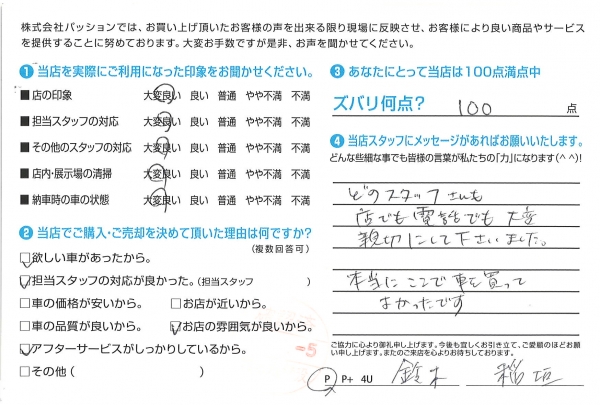 株式会社パッションでは、お買い上げ頂いたお客様の声を出来る限り現場に反映させ、お客様により良い商品やサービス
を提供することに努めております。大変お手数ですが是非、お声を聞かせてください。
❶ 当店を実際にご利用になった印象をお聞かせください。
■ 店の印象 大変良い 良い 普通 やや不満 不満
■ 担当スタッフの対応 大変良い 良い 普通 やや不満 不満
■ その他のスタッフの対応 大変良い 良い 普通 やや不満 不満
■ 店内・展示場の清掃 大変良い 良い 普通 やや不満 不満
■ 納車時の車の状態 大変良い 良い 普通 やや不満 不満
❷ 当店でご購入・ご売却を決めて頂いた理由は何ですか?
(複数回答可)
☑欲しい車があったから。
☑担当スタッフの対応が良かった。(担当スタッフ )
□車の価格が安いから。 □お店が近いから。
□車の品質が良いから。 ☑お店の雰囲気が良いから。
☑アフターサービスがしっかりしているから。
□その他( )
-5
❸ あなたにとって当店は100点満点中
ズバリ何点? 100 点
❹ 当店スタッフにメッセージがあればお願いいたします。
どんな些細な事でも皆様の言葉が私たちの「力」になります(^^)!
どのスタッフさんも
店でも電話でも大変
親切にして下さいました。
本当にここで車を買って
よかったです
ご協力に心より御礼申し上げます。今後も宜しくお引き立て、ご愛顧のほどお願
い申し上げます。またのご来店を心よりお待ちしております。
P P+ 4U 鈴木 稲垣